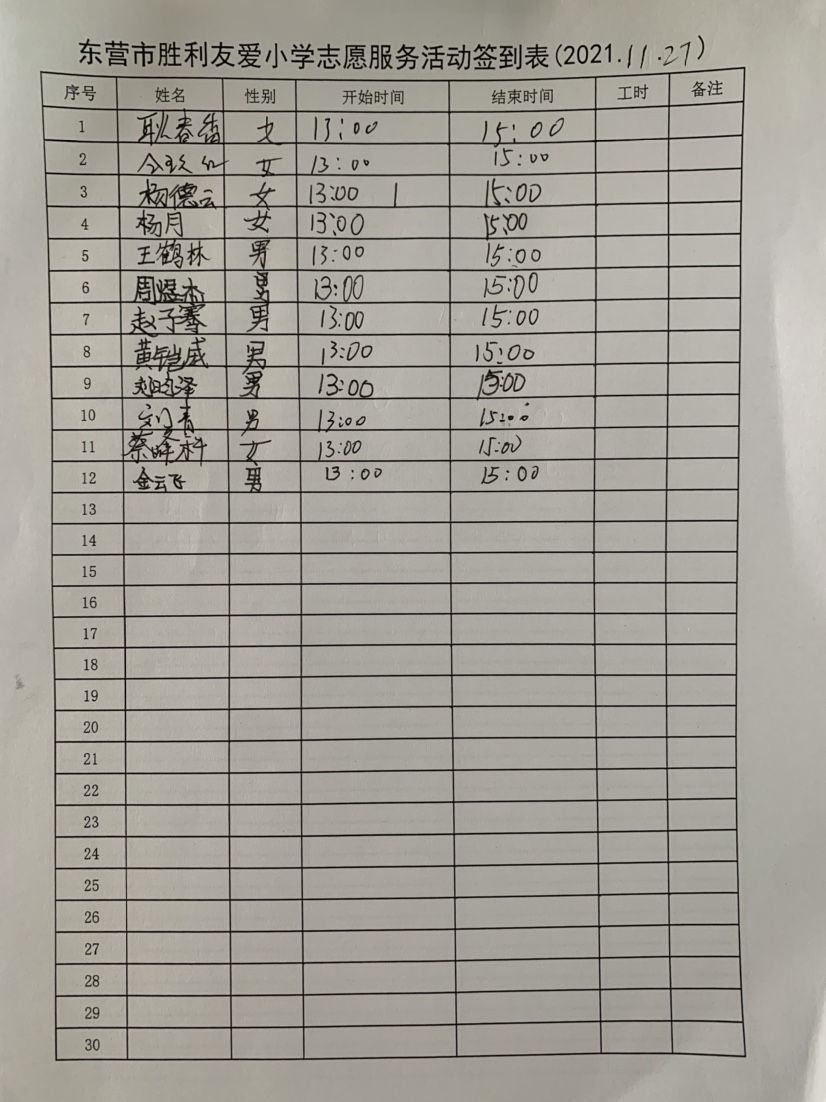 东营市胜利友爱小学志愿服务活动签到表(2021.11.27)
序号 姓名 性别 开始时间 结束时间 工时 备注
1 耿春香 女 13:00 15:00
2 女 13:00 15:00
3 杨德云 女 13:00 15:00
4 杨月 女 13:00 15:00
5 王鹤林 男 13:00 15:00
6 周煜杰 男 13:00 15:00
7 赵子骞 男 13:00 15:00
8 黄铠威 男 13:00 15:00
9 男 13:00 15:00
10 刘青 男 13:00 15:00
11 女 13:00 15:00
12 金云飞 男 13:00 15:00
13
14
15
16
17
18
19
20
21
22
23
24
25
26
27
28
29
30